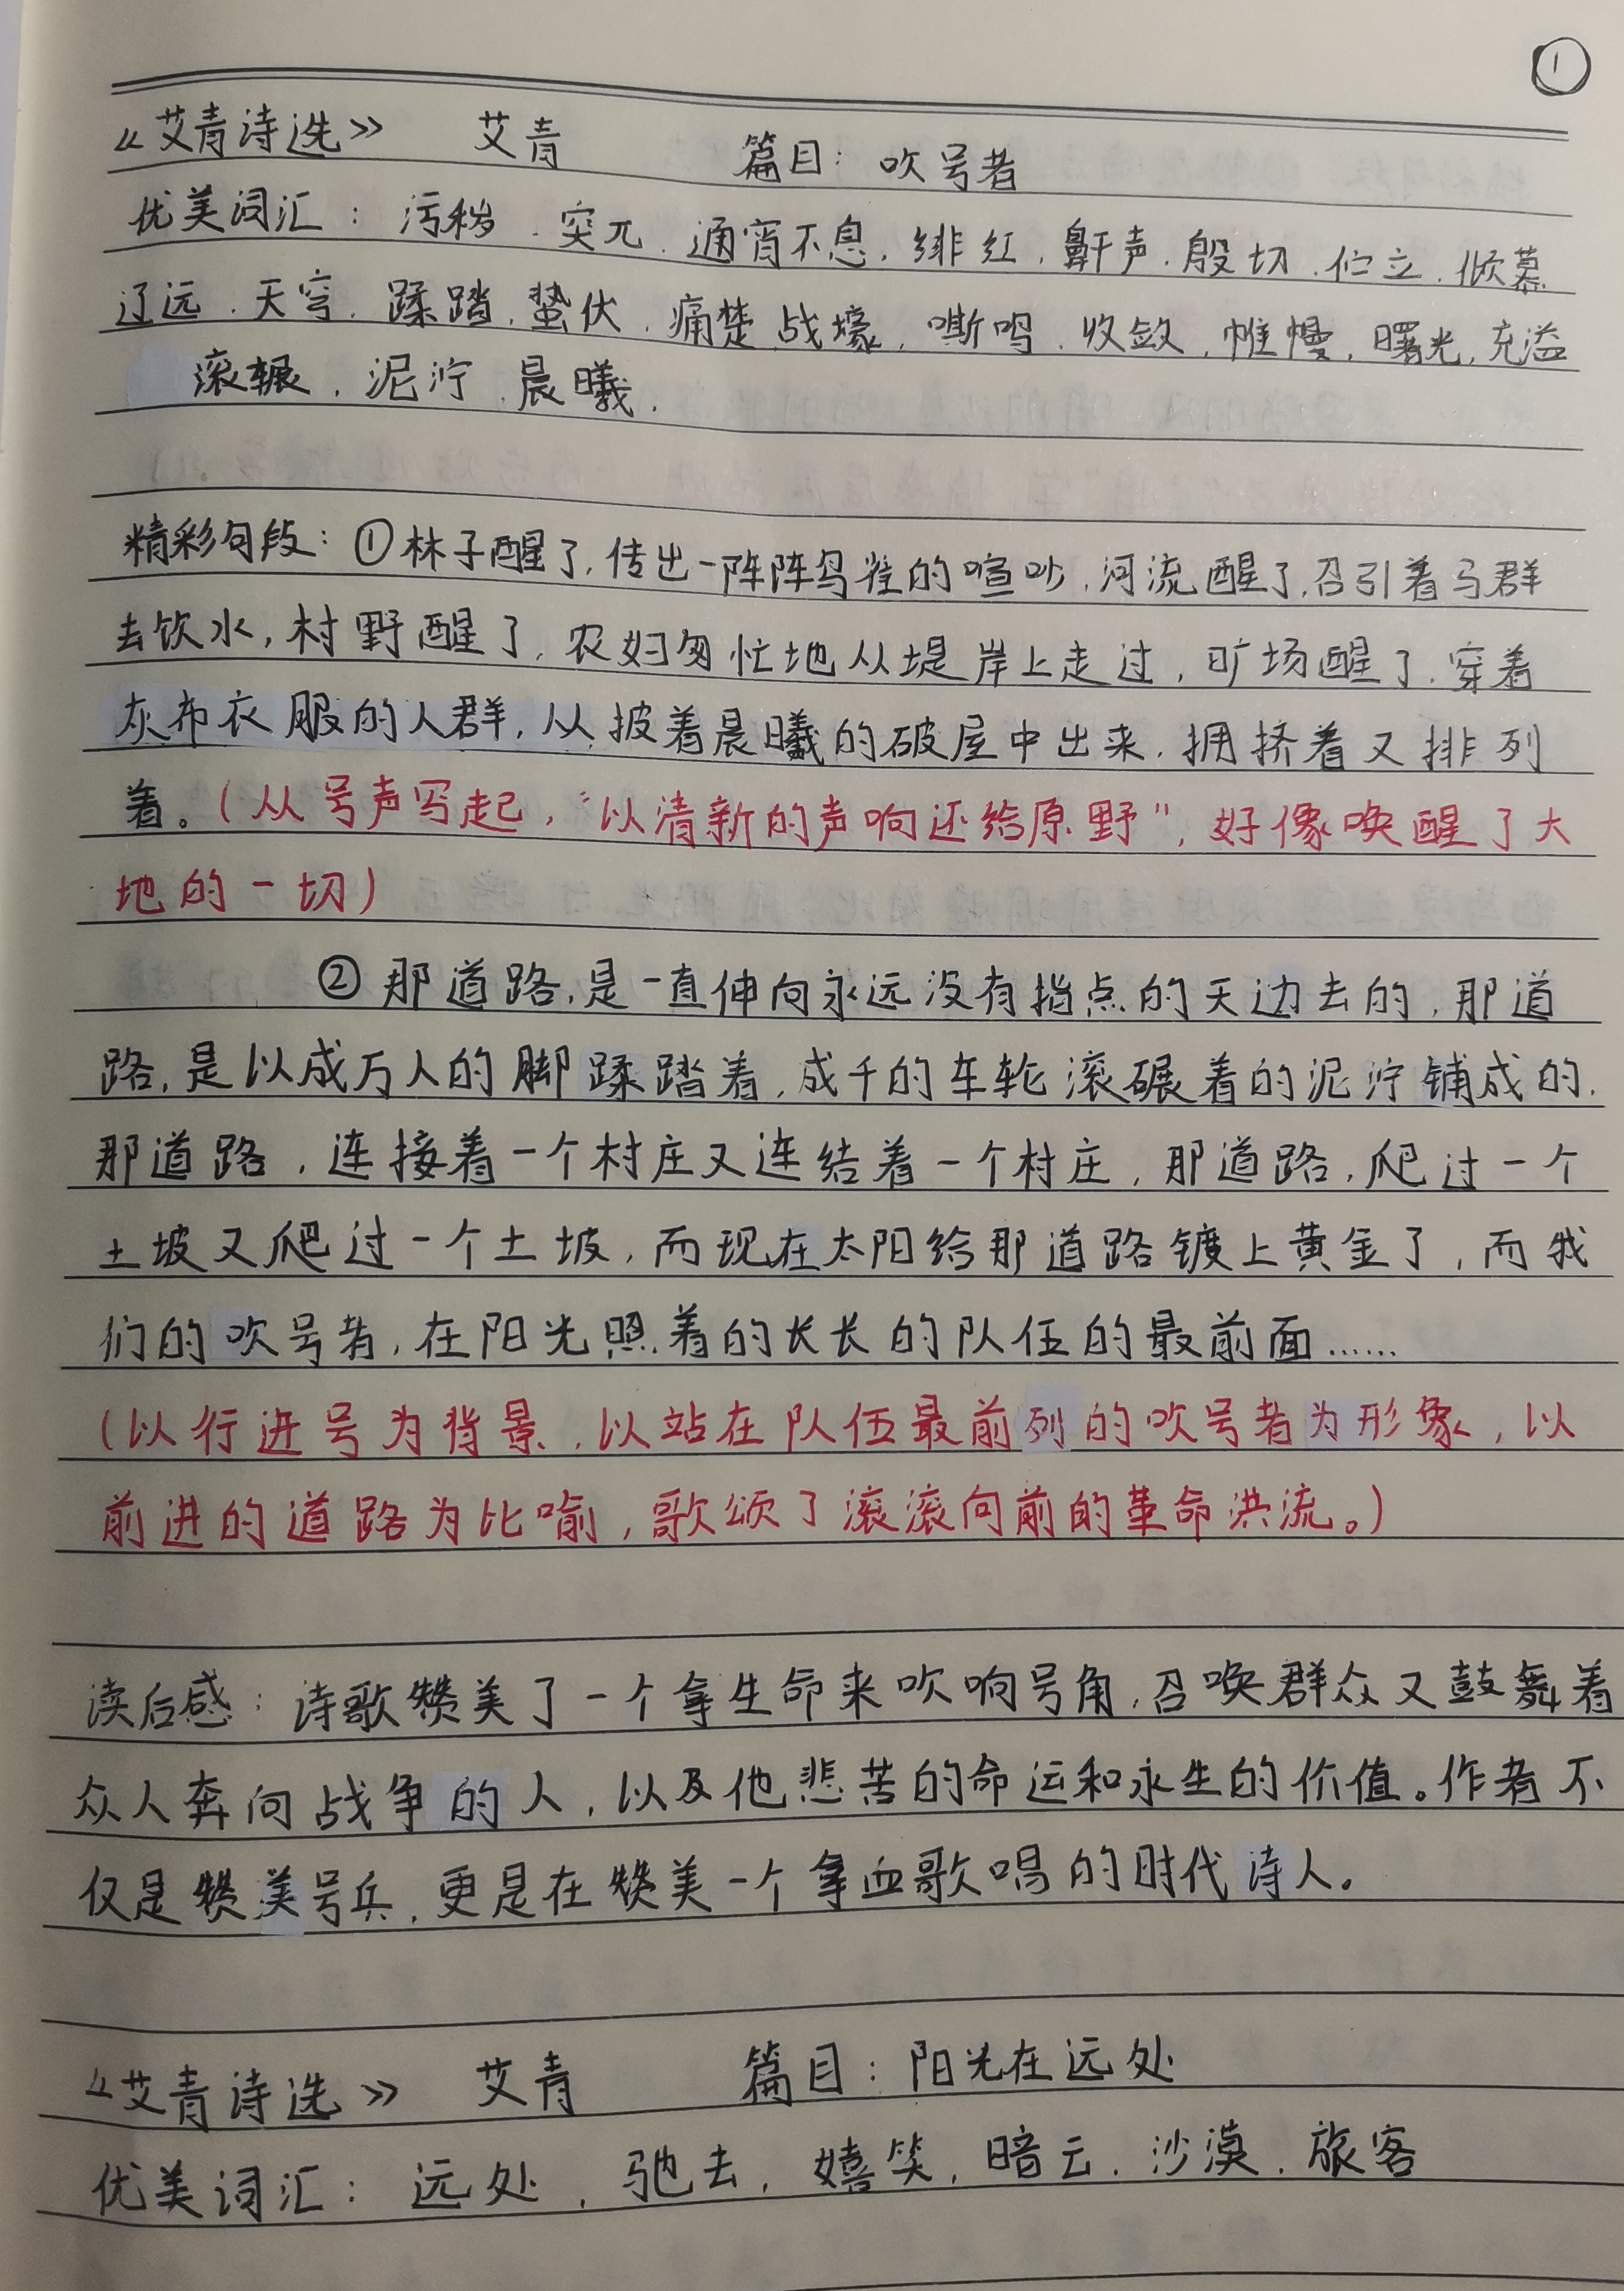 ①
《艾青诗选》 艾青 篇目：吹号者
优美词汇：污秽、突兀、通宵不息、绯红、鼾声、殷切、伫立、倾慕
辽远、天穹、蹂踏、蛰伏、痛楚 战壕、嘶鸣、收敛、帷幔、曙光、充溢
滚辗、泥泞、晨曦.
精彩句段：①林子醒了,传出一阵阵鸟雀的喧吵,河流醒了,召引着马群
去饮水,村野醒了,农妇匆忙地从堤岸上走过,旷场醒了,穿着
灰布衣服的人群,从披着晨曦的破屋中出来,拥挤着又排列
着。(从号声写起,“以清新的声响还给原野”,好像唤醒了大
地的一切)
②那道路,是一直伸向永远没有指点的天边去的,那道
路,是以成万人的脚蹂踏着,成千的车轮滚碾着的泥泞铺成的,
那道路,连接着一个村庄又连结着一个村庄,那道路,爬过一个
土坡又爬过一个土坡,而现在太阳给那道路镀上黄金了,而我
们的吹号者,在阳光照着的长长的队伍的最前面……
(以行进号为背景,以站在队伍最前列的吹号者为形象,以
前进的道路为比喻,歌颂了滚滚向前的革命洪流。)
读后感：诗歌赞美了一个拿生命来吹响号角,召唤群众又鼓舞着
众人奔向战争的人,以及他悲苦的命运和永生的价值。作者不
仅是赞美号兵,更是在赞美一个拿血歌唱的时代诗人。
《艾青诗选》 艾青 篇目：阳光在远处
优美词汇：远处,驰去,嬉笑,暗云,沙漠,旅客